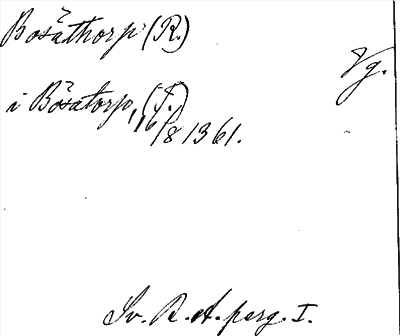 Bosathorp (R.)
Vg.
i Bosatorp, (T.)
16/8 1361.
Sv. R. A. perg. I.